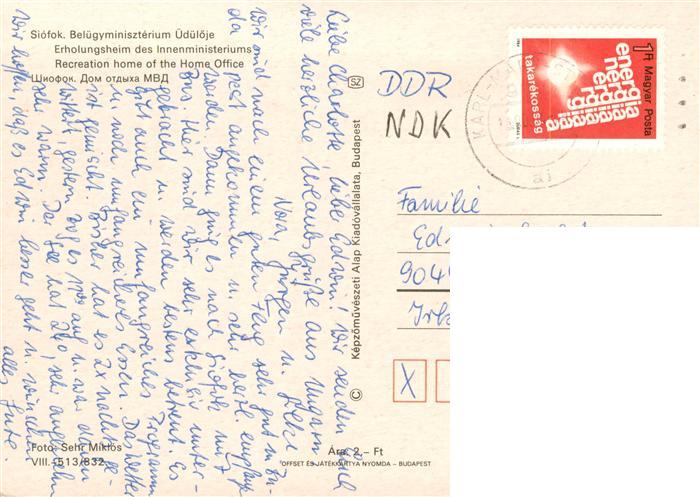 Siófok. Belügyminisztérium Üdülője
Erholungsheim des Innenministeriums
Recreation home of the Home Office
Шиофок. Дом отдыха МВД
Liebe Charlotte, liebe Edwin! Wir senden Euch
viele herzliche Urlaubsgrüße aus Ungarn
Nora, Jürgen u.
Wir sind nach einem guten Flug sehr gut in Bu-
dapest angekommen u. sehr herzl. empfangen
worden. Dann ging es nach Siofok mit
Bus. Hier sind wir sehr exklusiv unter-
gebracht u. werden bestens betreut. Es
gibt auch ein umfangreiches Programm
u. noch umfangreicheres Essen. Das Wetter
ist gemischt. Bisher hat es 2x nachts ge-
wittert, gestern zog es auf u. war dann
sehr warm. Der See hat 24°, sehr angenehm
Wir hoffen, daß es Edwin besser geht u. wünschen
alles Gute.
Foto: Sehr Miklós
VIII.-513/832
Képzőművészeti Alap Kiadóvállalata, Budapest
SZ
Ára: 2,– Ft
OFFSET ÉS JÁTÉKKÁRTYA NYOMDA – BUDAPEST
DDR
NDK
1 Ft Magyar Posta
energia
energia
energia
takarékosság
KARL-M
ai
Familie
Ed
904
X